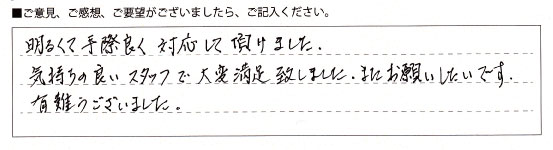 ■ご意見、ご感想、ご要望がございましたら、ご記入ください。
明るくて手際良く対応して頂けました.
気持ちの良いスタッフで大変満足致しました.またお願いしたいです.
有難うございました。